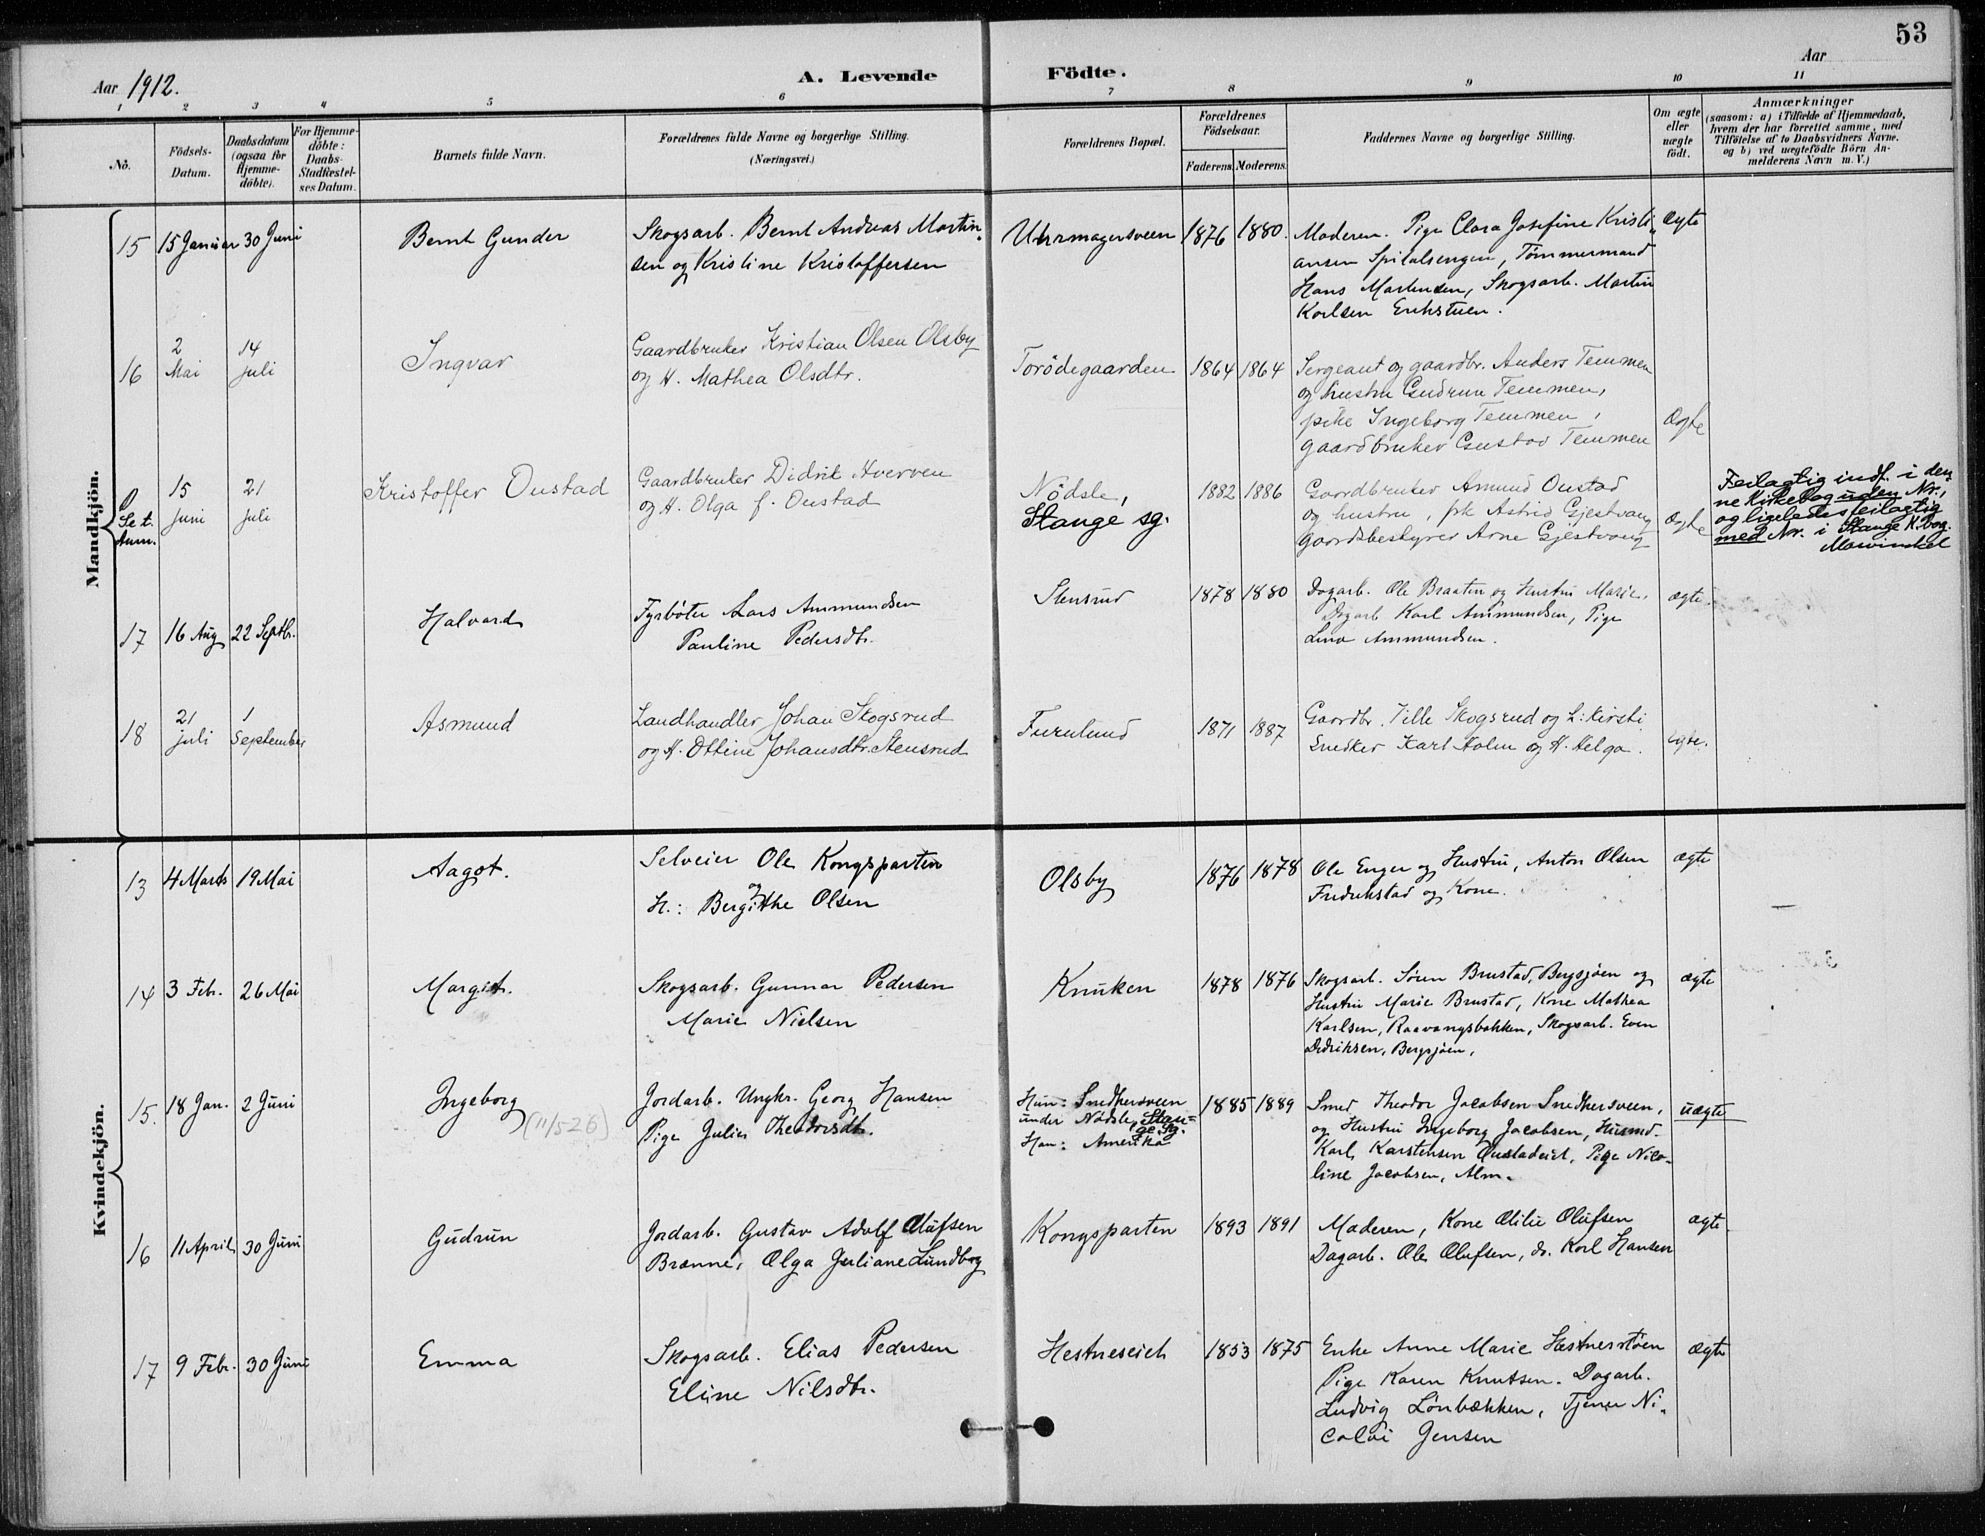 53
Aar 1912.
A. Levende Födte.
Aar
1 2 3 4 5 6 7 8 9 10 11
No.
Födsels-
Datum.
Daabsdatum
(ogsaa for
Hjemme-
döbte).
For Hjemme-
döbte:
Daabs-
Stadfæstel-
ses Datum.
Barnets fulde Navn.
Forældrenes fulde Navne og borgerlige Stilling.
(Næringsvei.)
Forældrenes Bopæl.
Forældrenes
Födselsaar.
Faderens. Moderens.
Faddernes Navne og borgerlige Stilling.
Om ægte
eller
uægte
födt.
Anmærkninger
(saasom: a) i Tilfælde af Hjemmedaab,
hvem der har forrettet samme, med
Tilföielse af to Daabsvidners Navne.
og b) ved uægtefödte Börn An-
melderens Navn m. V.)
Mandkjön.
15 15 Januar 30 Juni
Bernt Gunder
Skogsarb. Bernt Andreas Martin-
sen og Kristine Kristoffersen
Uhrmagersveen 1876 1880.
Moderen. Pige Clara Josefine Kristi-
ansen Spitalsengen, Tömmermand
Hans Martinsen, Skogsarb. Martin
Karlsen Erikstuen.
Ægte
16 2 Mai 14 juli
Ingvar
Gaardbruker Kristian Olsen Olsby
og H. Mathea Olsdtr.
Torödegaarden 1864 1864
Sergeant og gaardbr. Anders Temmen
og hustru Gudrun Temmen,
pike Ingeborg Temmen,
gaardbruker Gustav Temmen
Ægte
Se t.
Anm.
15 juni 21 juli
Kristoffer Oustad
Gaardbruker Didrik Hverven
og H. Olga f. Oustad
Nödsle,
Stange sg.
1882 1886
Gaardbruker Amund Oustad
og hustru, pk Astrid Gjestvang
gaardsbestyrer Arne Gjestvang
Ægte
Feilagtig indf. i den-
ne Kirkebog uden Nr.,
og ligeledes feilagtig
med Nr. i Stange K.bog.
17 16 Aug 22 Septb.
Halvard
Fyrböter Lars Ammundsen
Pauline Pedersdtr.
Stensrud 1878 1880
Dagarb. Ole Braaten og Hustru Marie,
Dagarb Karl Ammundsen, Pige
Lina Ammundsen.
ægte.
18 21 juli 1 September
Asmund
Landhandler Johan Skogsrud
og H. Ottine Johansdtr. Stensrud
Furulund 1871 1887
Gaardbr. Tille Skogsrud og h: Kirsti
Snedker Karl Holm og H. Helga.
ægte.
Kvindekjön.
13 4 Marts 19 Mai
Aagot.
Selveier Ole Kongsparten
og
H.: Bergitthe Olsen
Olsby 1876 1878
Ole Enger og Hustru, Anton Olsen
Fredrikstad og Kone.
ægte
14 3 Feb. 26 Mai
Margit.
Skogsarb. Gunnar Pedersen
Marie Nielsen
Knuken 1878 1876
Skogsarb. Sören Brustad, Bergsjöen og
Hustru Marie Brustad, Kone Mathea
Karlsen, Raavangsbakken, Skogsarb. Even
Didriksen, Bergsjöen,
ægte
15. 18 Jan. 2 Juni
Ingeborg
(11/5 26)
Jordarb. Ungkr. Georg Hansen
Pige Julie Theodorsdtr.
Hun: Snedkersveen
under Nödsle, Stan-
ge Sg.
Han: Amerika
1885 1889
Smed Theodor Jacobsen Snedkersveen,
og Hustru Ingeborg Jacobsen, Husmd.
Karl Karstensen Oustadeiet, Pige Nico-
line Jacobsen, Alm.
uægte
16 11 April 30 Juni
Gudrun
Jordarb. Gustav Adolf Olufsen
Brænne, Olga Juliane Lundborg
Kongsparten 1893 1891
Moderen, Kone Otilie Olufsen
Dagarb. Ole Olufsen, do. Karl Hansen
ægte
17 9 Febr. 30 Juni
Emma
Skogsarb. Elias Pedersen
Eline Nilsdtr.
Hestneseieh 1853 1875
Enke Anne Marie Hestnesstöen
Pige Karen Knutsen. Dagarb.
Ludvig Lönbækken, Tjener Ni-
colai Jensen
ægte